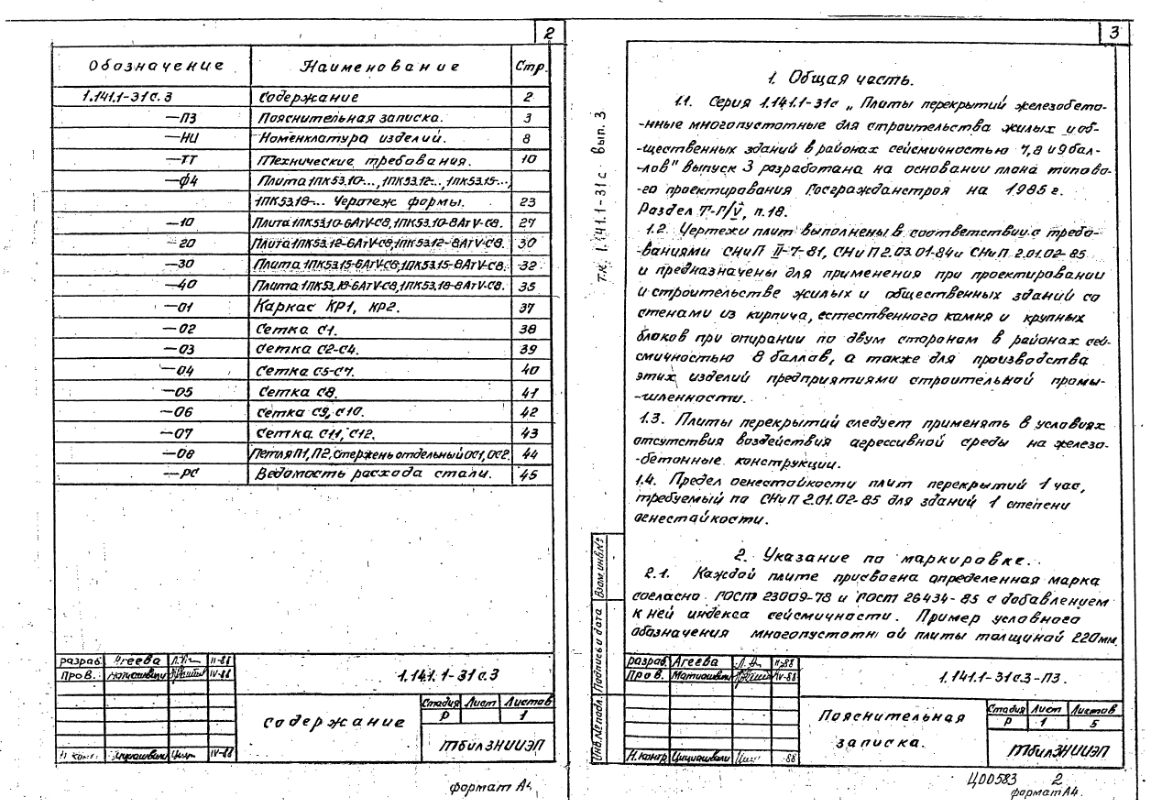 2
Обозначение Наименование Стр.
1.141.1-31с.3 Содержание 2
—ПЗ Пояснительная записка. 3
—НИ Номенклатура изделий. 8
—ТТ Технические требования. 10
—Ф4 Плита 1ПК53.10-..., 1ПК53.12-..., 1ПК53.15-...,
1ПК53.18-... Чертеж формы. 23
—10 Плита 1ПК53.10-6АтV-С8, 1ПК53.10-8АтV-С8. 27
—20 Плита 1ПК53.12-6АтV-С8, 1ПК53.12-8АтV-С8. 30
—30 Плита 1ПК53.15-6АтV-С8, 1ПК53.15-8АтV-С8. 32
—40 Плита 1ПК53.18-6АтV-С8, 1ПК53.18-8АтV-С8. 35
—01 Каркас КР1, КР2. 37
—02 Сетка С1. 38
—03 Сетка С2-С4. 39
—04 Сетка С5-С7. 40
—05 Сетка С8. 41
—06 Сетка С9, С10. 42
—07 Сетка С11, С12. 43
—08 Петля П1, П2, Стержень отдельный ОС1, ОС2. 44
—РС Ведомость расхода стали. 45
разраб. Агеева 11-88
Пров. IV-88
1.141.1-31с.3
Содержание
Стадия Лист Листов
Р 1
ТбилЗНИИЭП
Н. контр. IV-88
формат А4
3
т.к. 1.141.1-31с вып. 3
1. Общая часть.
1.1. Серия 1.141.1-31с „Плиты перекрытий железобето-
-нные многопустотные для строительства жилых и об-
-щественных зданий в районах сейсмичностью 7,8 и 9 бал-
-лов" выпуск 3 разработана на основании плана типово-
-го проектирования Госгражданстроя на 1985 г.
Раздел Т-Г/V, п.18.
1.2. Чертежи плит выполнены в соответствии с требо-
-ваниями СНиП II-7-81, СНиП 2.03.01-84 и СНиП 2.01.02-85
и предназначены для применения при проектировании
и строительстве жилых и общественных зданий со
стенами из кирпича, естественного камня и крупных
блоков при опирании по двум сторонам в районах сей-
смичностью 8 баллов, а также для производства
этих изделий предприятиями строительной промы-
-шленности.
1.3. Плиты перекрытий следует применять в условиях
отсутствия воздействия агрессивной среды на железо-
-бетонные конструкции.
1.4. Предел огнестойкости плит перекрытий 1 час,
требуемый по СНиП 2.01.02-85 для зданий 1 степени
огнестойкости.
2. Указание по маркировке.
2.1. Каждой плите присвоена определенная марка
согласно ГОСТ 23009-78 и ГОСТ 26434-85 с добавлением
к ней индекса сейсмичности. Пример условного
обозначения многопустотной плиты толщиной 220мм
Инв.№ подл. Подпись и дата Взам. инв.№
разраб. Агеева 11-88
Пров. Матиашвили IV-88
1.141.1-31с.3-ПЗ.
Пояснительная
записка.
Стадия Лист Листов
Р 1 5
ТбилЗНИИЭП
Н.контр. Цицишвили 88
Ц00583 2
формат А4.